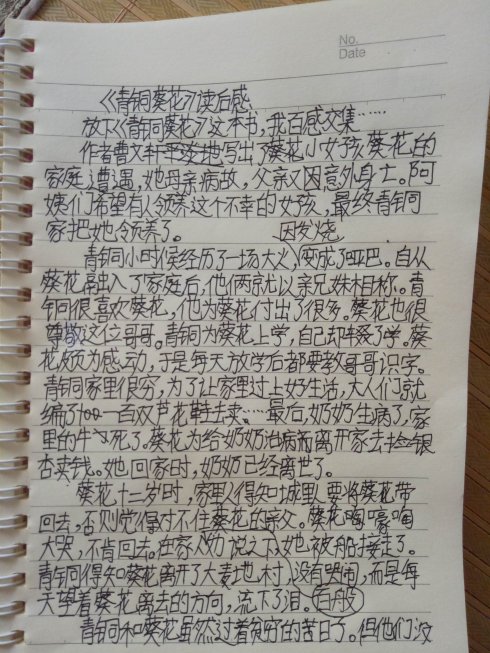 No.
Date
《青铜葵花》读后感
放下《青铜葵花》这本书，我百感交集……
作者曹文轩平淡地写出了葵花小女孩葵花的
家庭遭遇，她母亲病故，父亲又因意外身亡。阿
姨们希望有人领养这个不幸的女孩，最终青铜
家把她领养了。
因发烧
青铜小时候经历了一场大火，成了哑巴。自从
葵花融入了家庭后，他俩就以亲兄妹相称。青
铜很喜欢葵花，他为葵花付出了很多。葵花也很
尊敬这位哥哥。青铜为葵花上学，自己却辍了学。葵
花颇为感动，于是每天放学后都要教哥哥识字。
青铜家里很穷，为了让家里过上好生活，大人们就
编了一百双芦花鞋去卖……最后，奶奶生病了，家
里的牛也死了。葵花为给奶奶治病而离开家去捡银
杏卖钱。她回家时，奶奶已经离世了。
葵花十二岁时，家里人得知城里人要将葵花带
回去，否则觉得对不住葵花的亲父。葵花嚎啕
大哭，不肯回去。在家人劝说之下，她被船接走了。
青铜得知葵花离开了大麦地村，没有哭闹，而是每
天望着葵花离去的方向，流下了泪。
青铜和葵花虽然过着贫穷的苦日子。但他们没